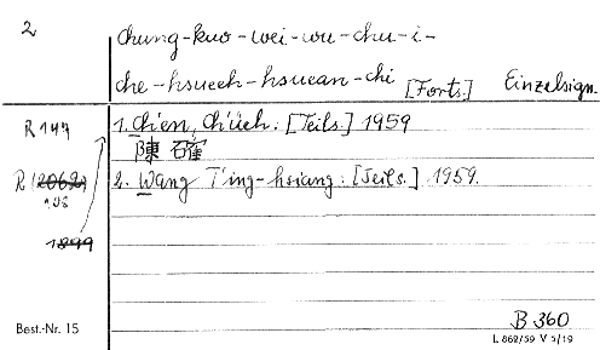 2
chung-kuo-wei-wu-chu-i-
che-hsueeh-hsuean-chi [Forts.] Einzelsign.
R 147 1. Ch'en, Ch'üeh: [Teils.] 1959
陳 確
R (2062) 2. Wang T'ing-hsiang: [Teils.] 1959.
108
1899
B 360
Best.-Nr. 15 L 862/59 V 5/19